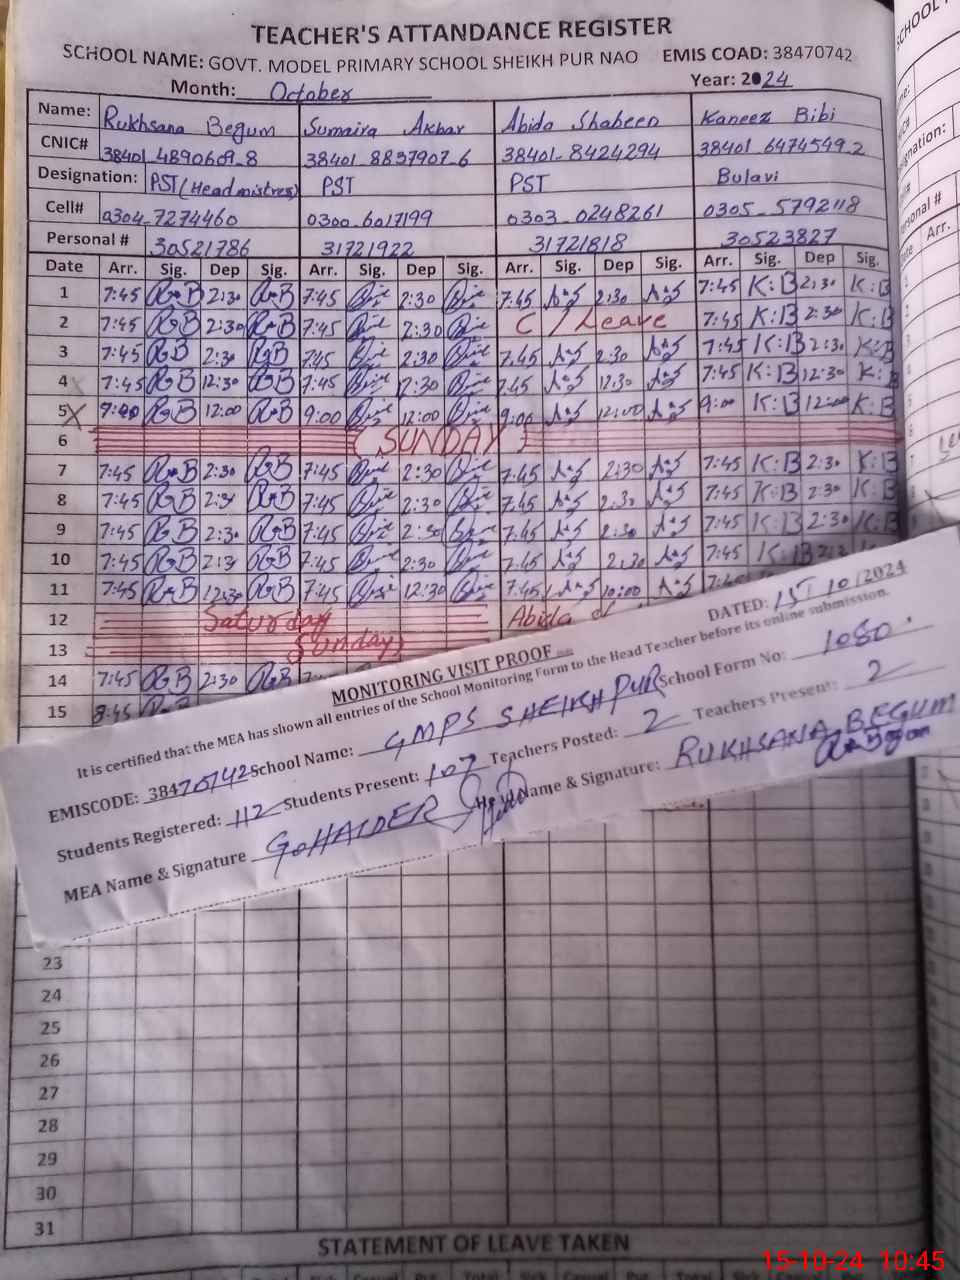 TEACHER'S ATTANDANCE REGISTER
SCHOOL NAME: GOVT. MODEL PRIMARY SCHOOL SHEIKH PUR NAO EMIS COAD: 38470742
Month: October Year: 2024
Name: Rukhsana Begum Sumaira Akbar Abida Shaheen Kaneez Bibi
CNIC# 38401_4890609_8 38401_8837907_6 38401_8424294 38401_6474549_2
Designation: PST (Head mistres) PST PST Bulavi
Cell# 0304_7274460 0300_6017199 0303_0248261 0305_5792118
Personal # 30521786 31721922 31721818 30523827
Date Arr. Sig. Dep Sig. Arr. Sig. Dep Sig. Arr. Sig. Dep Sig. Arr. Sig. Dep Sig.
1 7:45 R*B 2:30 R*B 7:45 2:30 7:45 2:30 7:45 K:B 2:30 K:B
2 7:45 RB 2:30 R*B 7:45 2:30 C/Leave 7:45 K:B 2:30 K:B
3 7:45 RB 2:30 RB 7:45 2:30 7:45 2:30 7:45 K:B 2:30 K:B
4 7:45 RB 12:30 RB 7:45 12:30 7:45 12:30 7:45 K:B 12:30 K:
5 RB 12:00 R*B 9:00 12:00 9:00 12:00 9:00 K:B 12:00 K:B
6 (SUNDAY)
7 7:45 R*B 2:30 RB 7:45 2:30 7:45 2:30 7:45 K:B 2:30 K:B
8 7:45 RB 2:30 R*B 7:45 2:30 7:45 2:30 7:45 K:B 2:30 K:B
9 7:45 RB 2:30 RB 7:45 2:30 7:45 2:30 7:45 K:B 2:30 K:B
10 7:45 RB 2:30 RB 7:45 2:30 7:45 2:30 7:45 K:B
11 7:45 R*B 12:30 RB 7:45 12:30 7:45 10:00
12 Saturday Abida
13 Sunday
14 7:45 RB 2:30 RB
15 8:45
MONITORING VISIT PROOF DATED: 15T 10/2024
It is certified that the MEA has shown all entries of the School Monitoring Form to the Head Teacher before its online submission.
EMISCODE: 38470742 School Name: GMPS SHEIKH PUR School Form No: 1080
Students Registered: 112 Students Present: 107 Teachers Posted: 2 Teachers Present: 2
MEA Name & Signature G. HAIDER Name & Signature: RUKHSANA BEGUM
23
24
25
26
27
28
29
30
31
STATEMENT OF LEAVE TAKEN
15-10-24 10:45